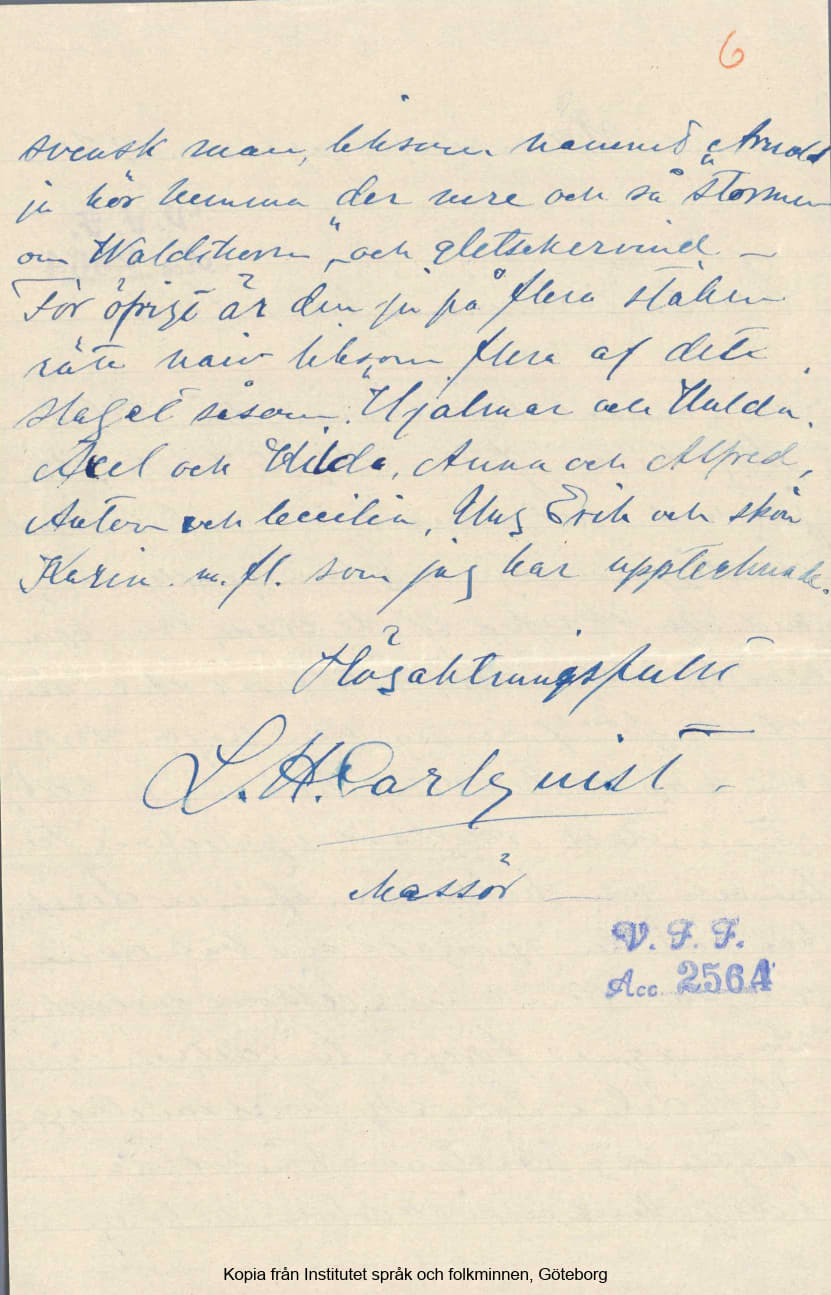 6
svensk man, liksom namnet "Arnold
ju hör hemma der nere och så "stormen
om Waldthorn" och gletsckervind –
För öfrigt är den ju på flera ställen
rätt naiv liksom flera af detta
slaget såsom: "Hjalmar och Hulda,
Axel och Hilda, Anna och Alfred,
Anton och Cecilia, Ung Erik och skön
Karin m. fl. som jag har upptecknade.
Högaktningsfullt
L. H. Carlqvist –
Massör –
V. F. F.
Acc. 2564
Kopia från Institutet språk och folkminnen, Göteborg